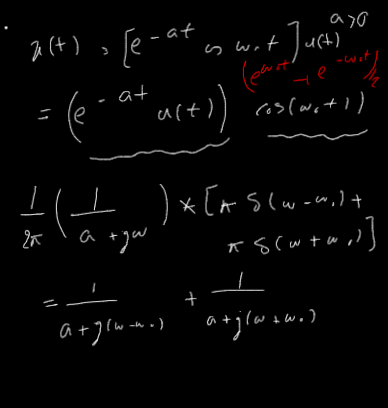 x(t) = [e^{-at} cos ω₀t] u(t) a>0
(e^{ω₀t} + e^{-ω₀t})/2
= (e^{-at} u(t)) cos(ω₀t)
1/2π (1/(a + jω)) * [π δ(ω - ω₀) +
π δ(ω + ω₀)]
= 1/(a + j(ω - ω₀)) + 1/(a + j(ω + ω₀))